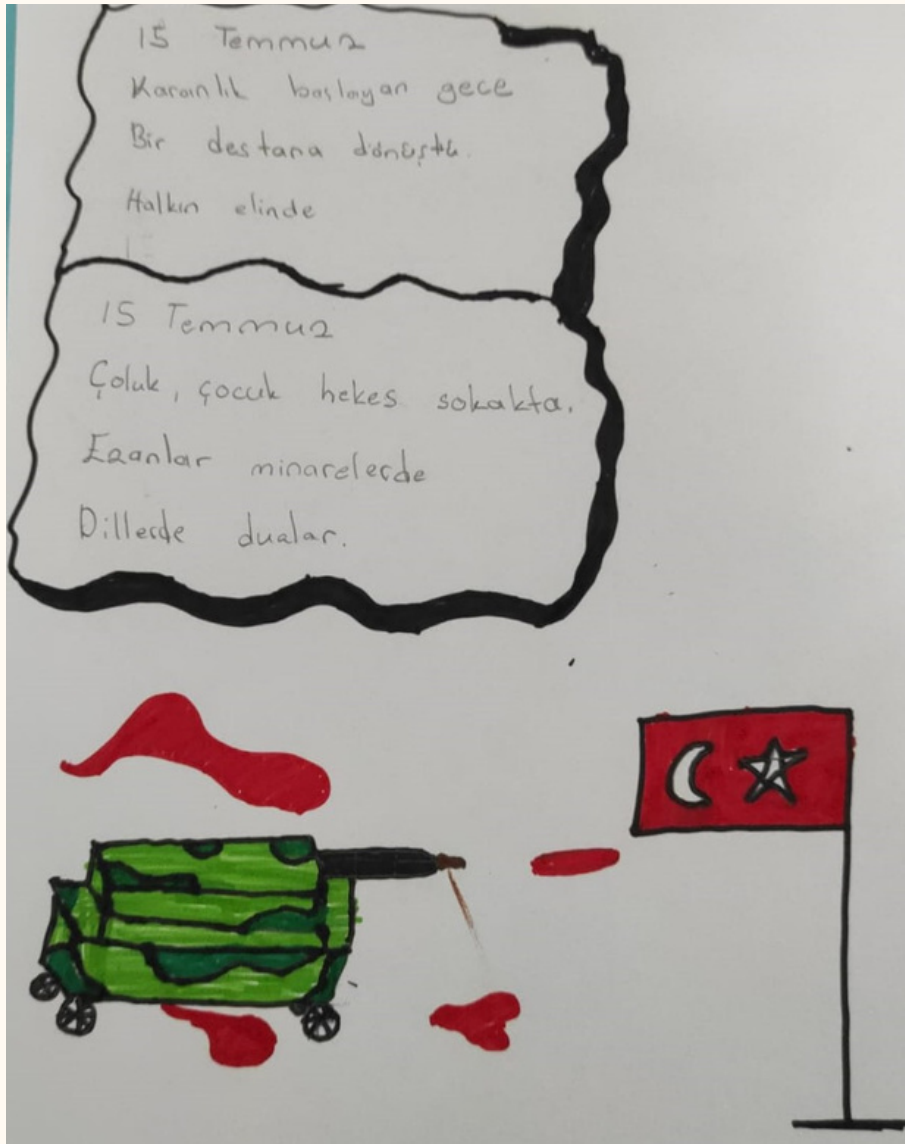 15 Temmuz
Karanlık başlayan gece
Bir destana dönüştü.
Halkın elinde
15 Temmuz
Çoluk, çocuk hekes sokakta.
Ezanlar minarelerde
Dillerde dualar.